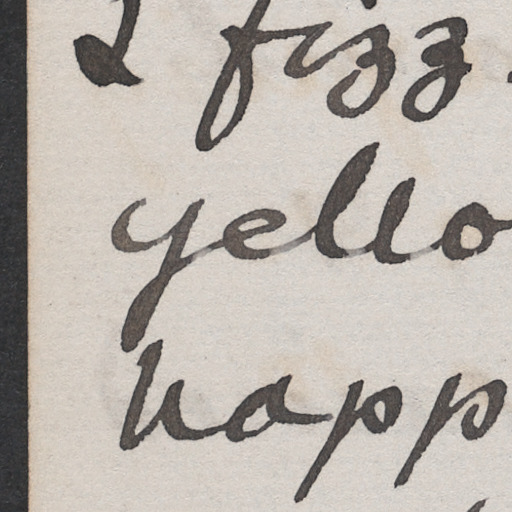 & fizz
yello
happ